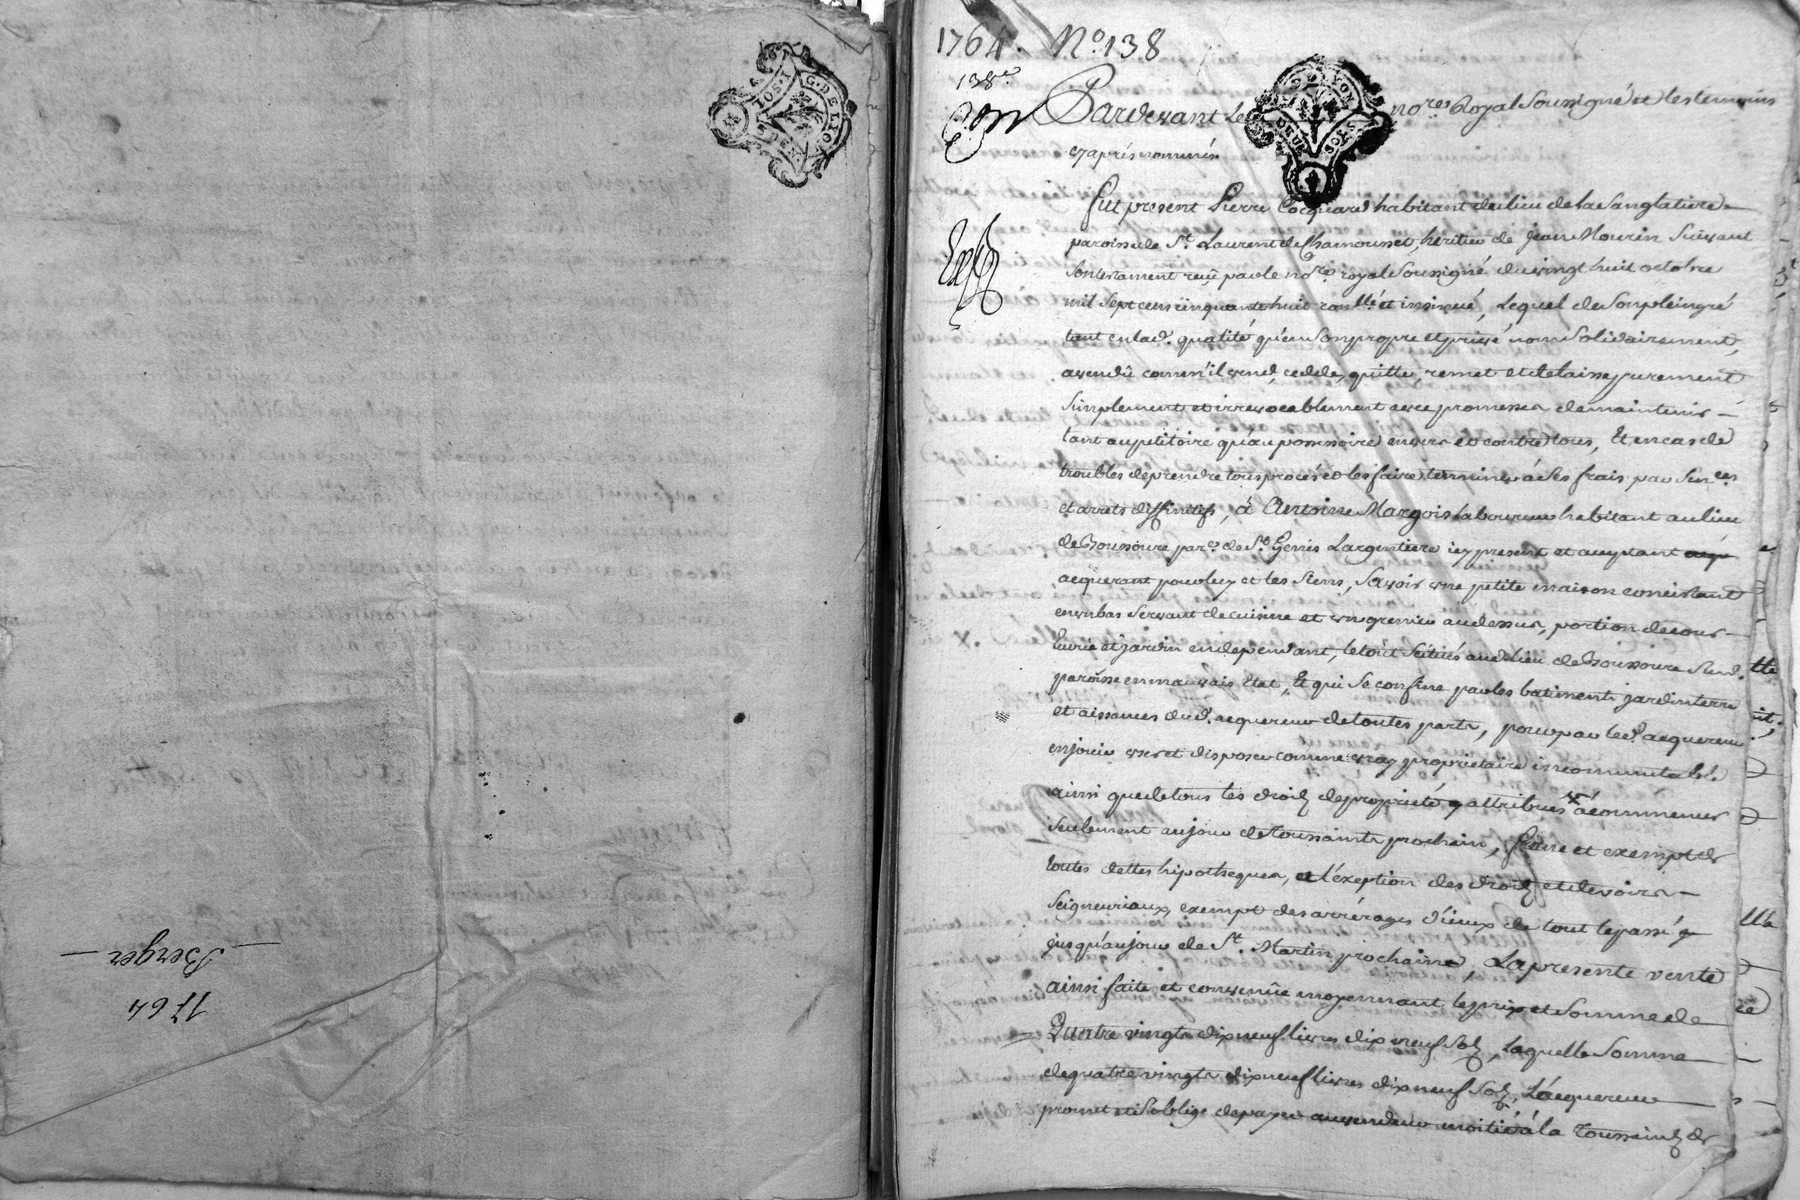 Berger
1764
G. DE LYON
1764. No. 138
138e
Con
Exp
Pardevant Le nores Royal Soussigné et les temoins
cy aprés nommés
Fut present Pierre Cocquard habitant du lieu de la Sanglatiere
paroisse de St. Laurent de Chamousset, heritier de Jean Mourin Suivant
son testament reçû par le nore. royal Soussigné du vingt huit octobre
mil Sept cens cinquante huit con.llé et insinué, Lequel de Son plein gré
tant en lad. qualité qu'en Son propre et privé nom Solidairement,
a vendû comm'il vend, cedde, quitte, remet et delaisse purement
Simplement et irrevocablement avec promesses de maintenir
tant au petitoire qu'au possessoire envers et contre tous, Et en cas de
troubles de prendre tous procés et les faire terminer á Ses frais par Sen.ces
et arrets diffinitifs, á Antoine Margois laboureur habitant au lieu
de Boussoure par.e de St. Genis Largentiere icy present et acceptant
acquerant pour luy et les Siens, Savoir une petite maison concistant
en un bas Servant de cuisine et un grenier au dessus, portion de cour
Ecurie et jardin en dependant, le tout Scitués aud. lieu de Boussoure Sud.
paroisse en mauvais Etat, Et qui Se confine par les batiments jardin terre
et aissances dud. acquereur de toutes parts, pour par led. acquereur
en jouir user et disposer comme vray propriétaire incommutable
ainsi que de tous les droits de proprieté y attribués á commencer
Seulement au jour de Toussaints prochain, franc et exempt de
toutes dettes hipotheques, á l'exeption des droits et devoirs
Seigneuriaux, exempt des arrérages d'iceux de tout le passé
jusqu'au jour de St. Martin prochaine, La presente vente
ainsi faite et convenûe moyennant le prix et Somme de
Quatre vingts dix neuf livres dix neuf Sols, laquelle Somme
de quatre vingts dix neuf livres dix neuf Sols, L'acquereur
promet et S'oblige de payer au vendeur moitié á la Toussaints de